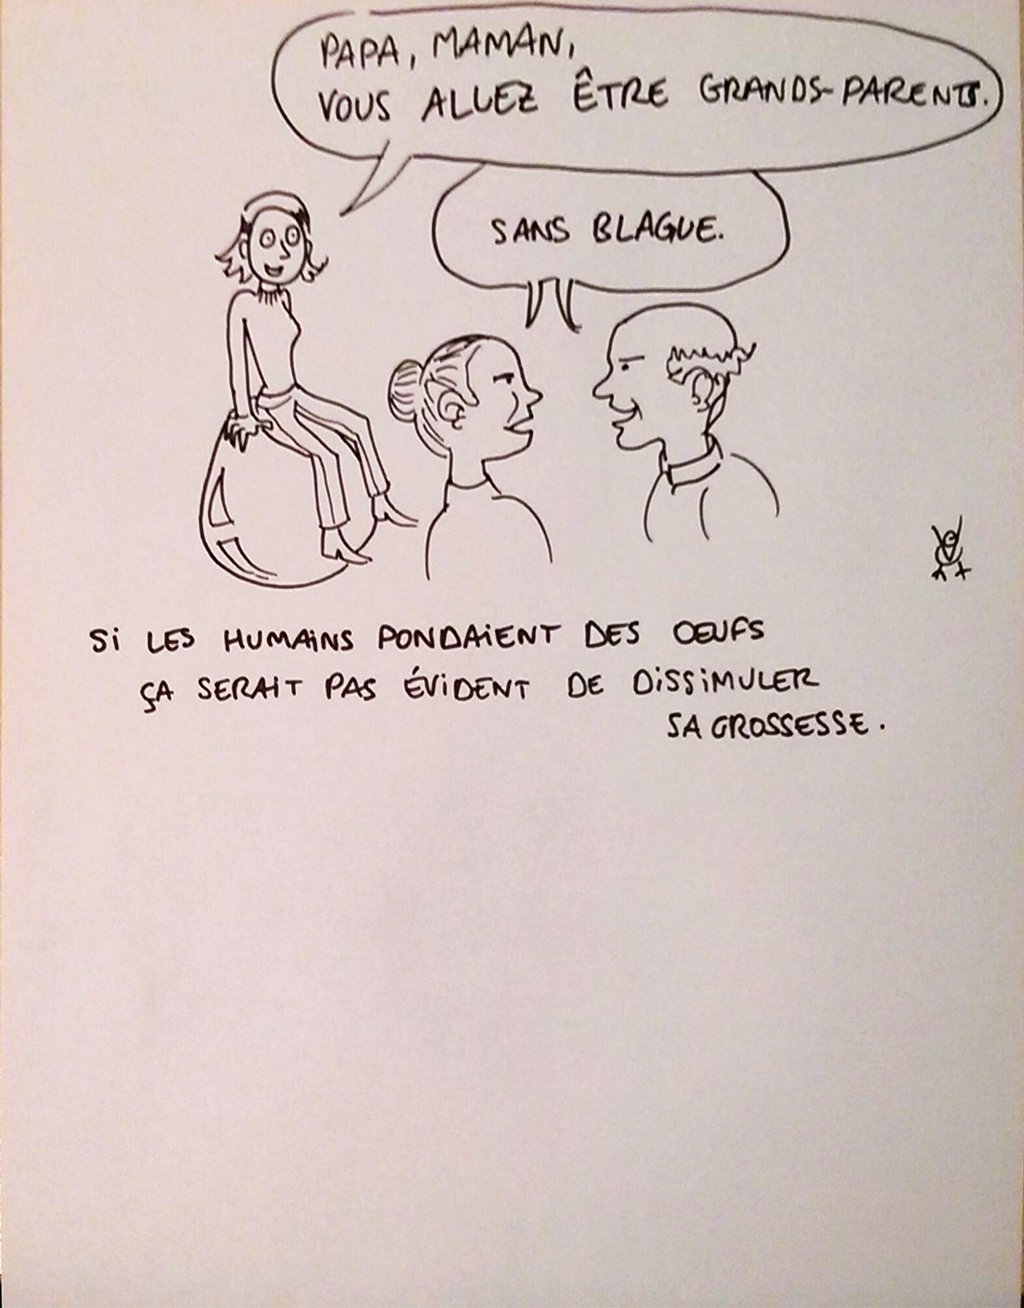 PAPA, MAMAN,
VOUS ALLEZ ÊTRE GRANDS-PARENTS.
SANS BLAGUE.
Si LES HUMAiNS PONDAiENT DES ŒUFS
ÇA SERAIT PAS ÉViDENT DE DiSSiMULER
SA GROSSESSE.